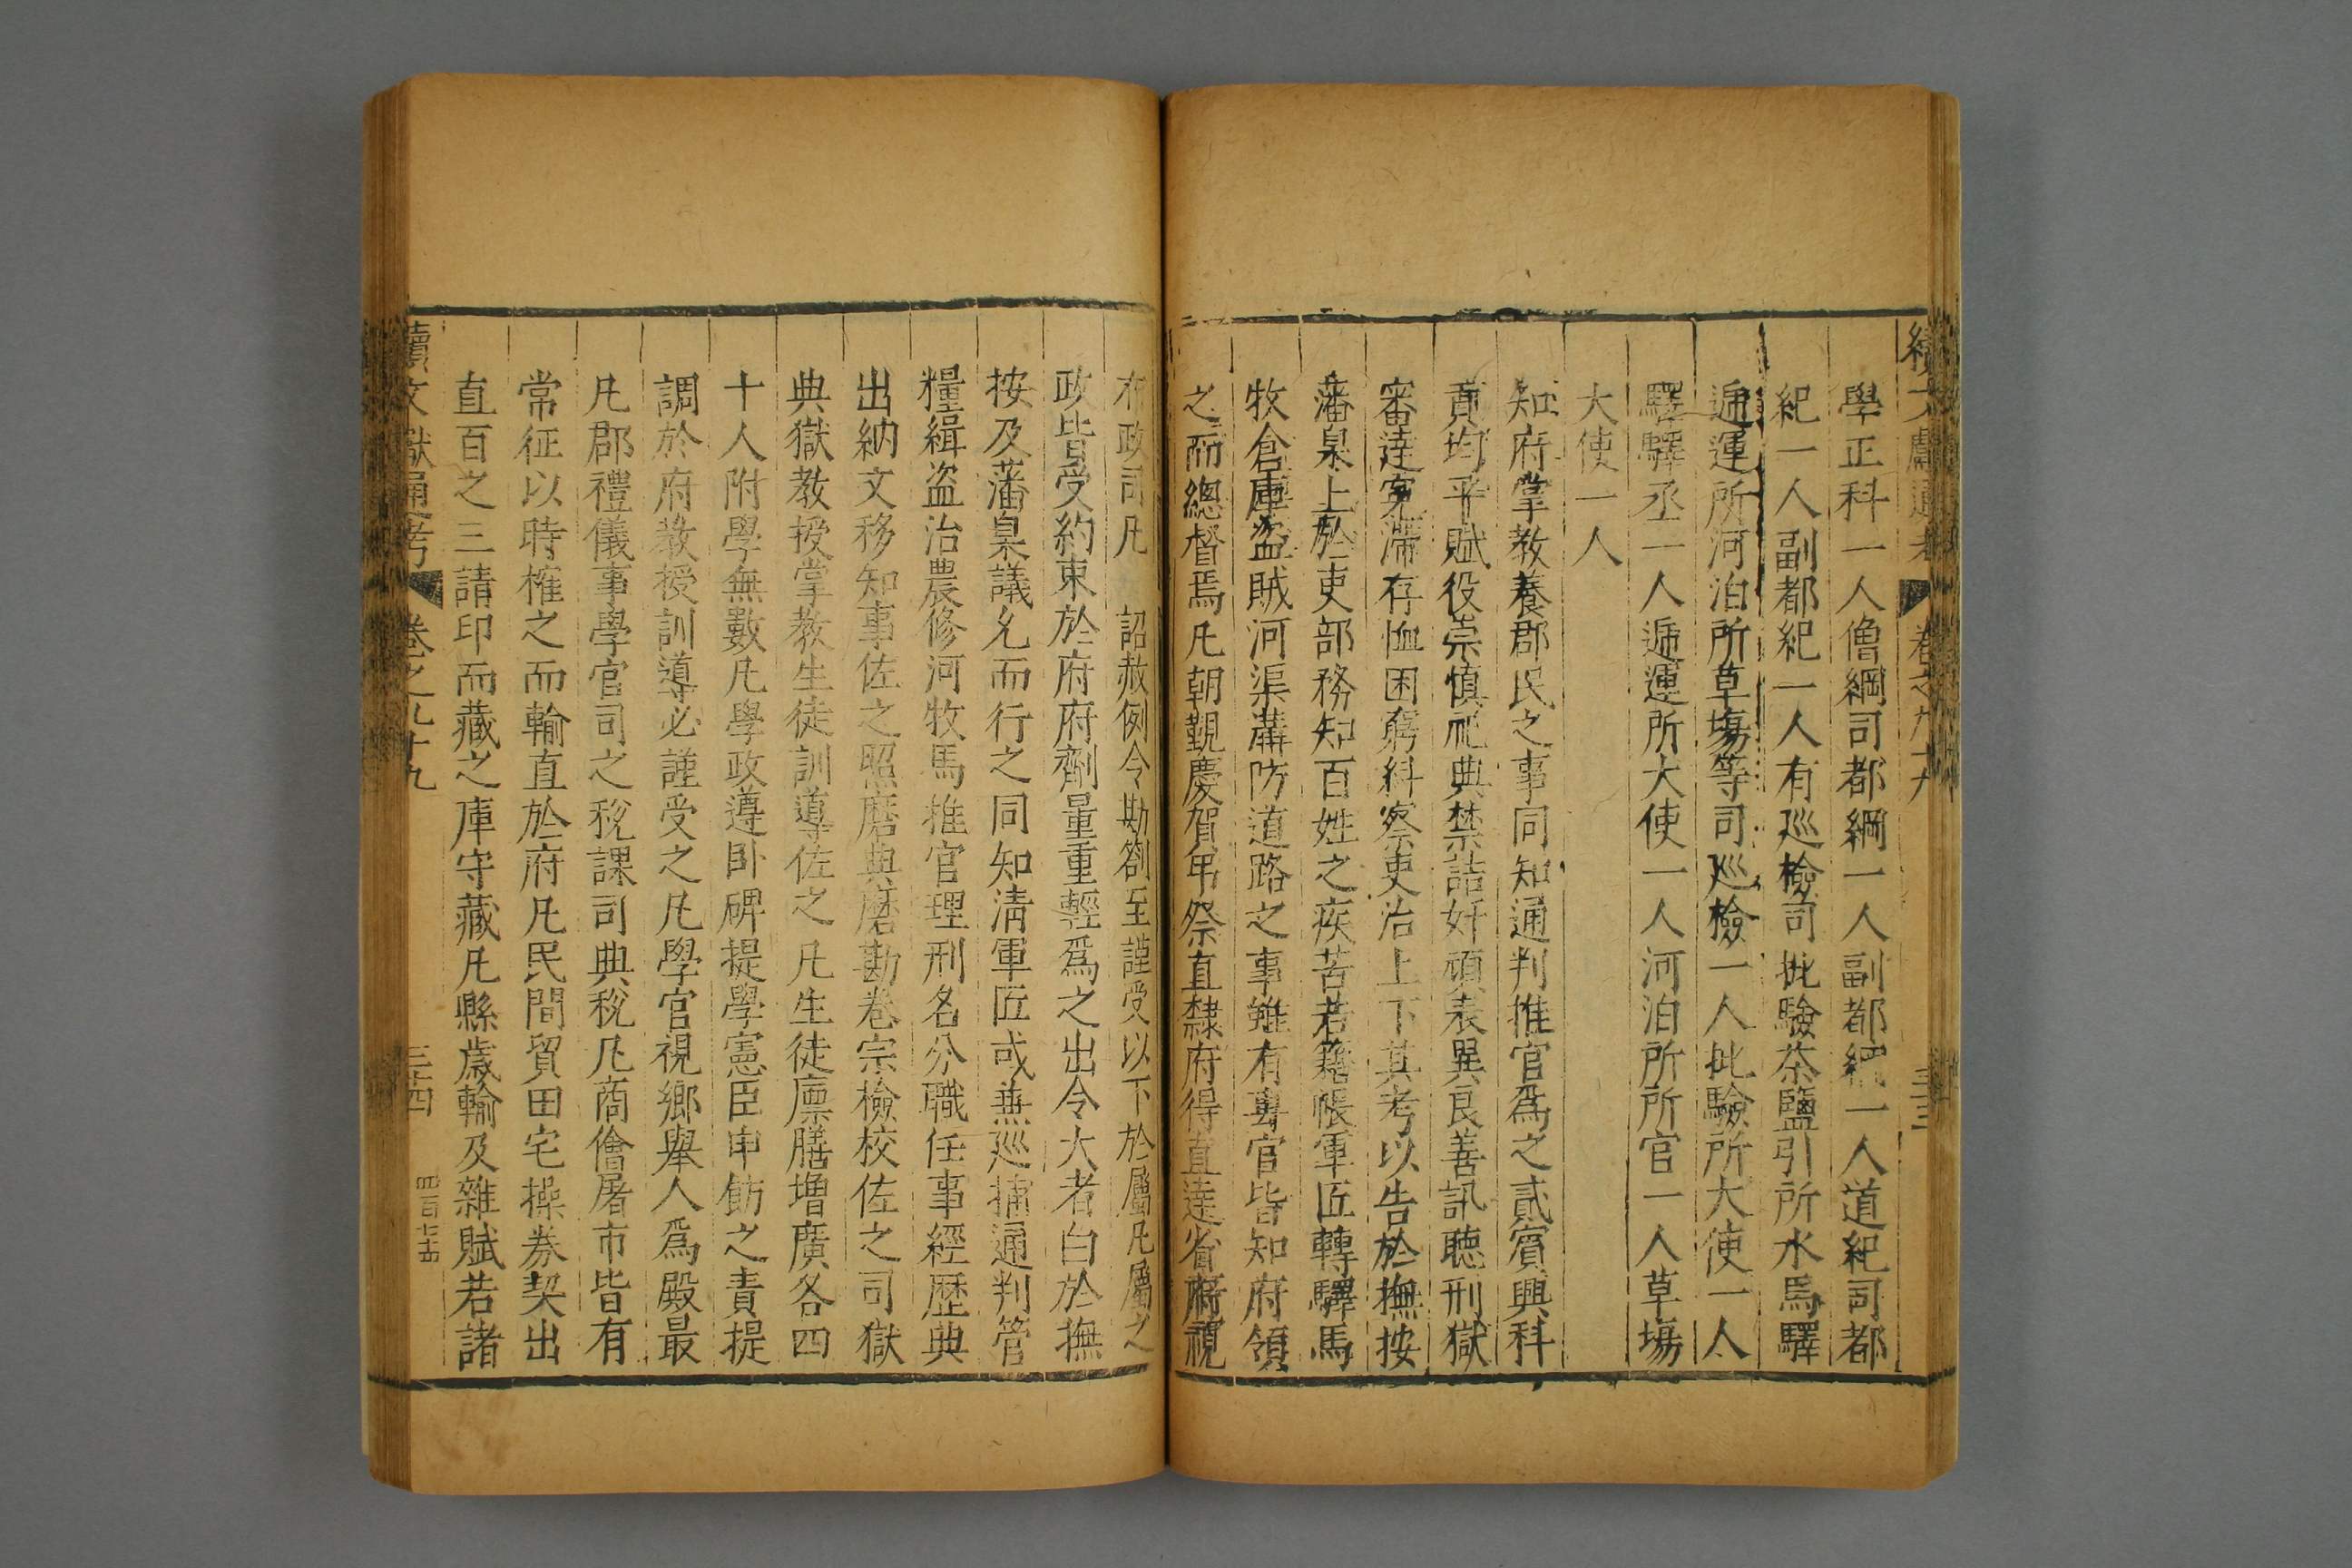 續文獻通考 卷之九十九 三十三
學正科一人僧綱司都綱一人副都綱一人道紀司都
紀一人副都紀一人有巡檢司批驗茶鹽引所水馬驛
遞運所河泊所草場等司巡檢一人批驗所大使一人
驛驛丞一人遞運所大使一人河泊所所官一人草場
大使一人
知府掌教養郡民之事同知通判推官爲之貳賓興科
貢均平賦役崇慎祀典禁詰奸頑表異良善訊聽刑獄
審達寃滯存恤困窮糾察吏治上下其考以告於撫按
藩臬上於吏部務知百姓之疾苦若籍帳軍匠轉驛馬
牧倉庫盜賊河渠溝防道路之事雖有專官皆知府領
之而總督焉凡朝覲慶賀弔祭直隸府得直達省府視
布政司凡 詔赦例令勘劄至謹受以下於屬凡屬之
政皆受約束於府府劑量重輕爲之出令大者白於撫
按及藩臬議允而行之同知清軍匠或兼巡捕通判管
糧緝盜治農修河牧馬推官理刑名分職任事經歷典
出納文移知事佐之照磨典磨勘卷宗檢校佐之司獄
典獄教授掌教生徒訓導佐之凡生徒廩膳增廣各四
十人附學無數凡學政遵卧碑提學憲臣申飭之責提
調於府教授訓導必謹受之凡學官視鄉舉人爲殿最
凡郡禮儀事學官司之稅課司典稅凡商儈屠市皆有
常征以時榷之而輸直於府凡民間貿田宅操券契出
直百之三請印而藏之庫守藏凡縣歲輸及雜賦若諸
續文獻通考 卷之九十九 三十四